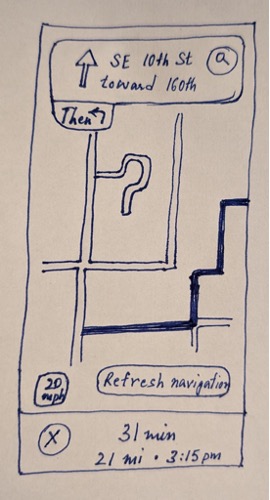 SE 10th St
toward 160th
Then
20
mph
Refresh navigation
X
31 min
21 mi • 3:15pm